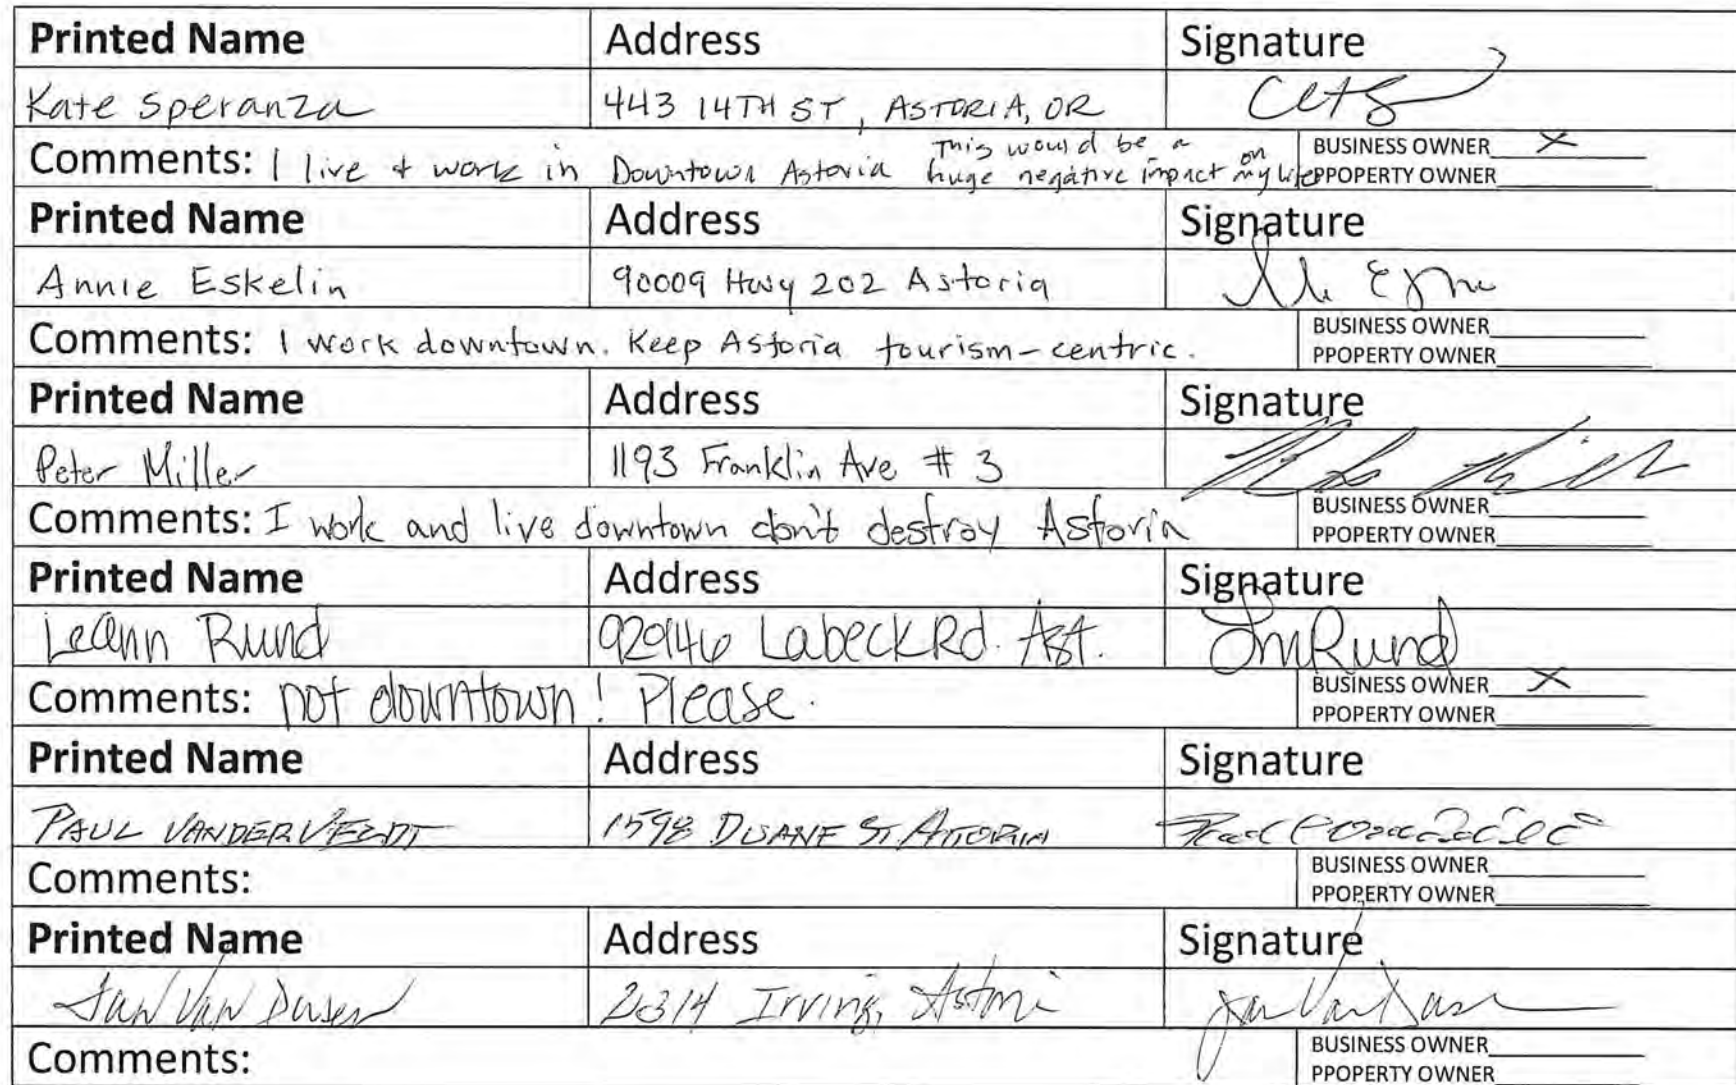 Printed Name Address Signature
Kate Speranza 443 14TH ST, ASTORIA, OR
Comments: I live + work in Downtown Astoria This would be a huge negative impact on my life BUSINESS OWNER X
PPOPERTY OWNER
Printed Name Address Signature
Annie Eskelin 90009 Hwy 202 Astoria
Comments: I work downtown. Keep Astoria tourism-centric. BUSINESS OWNER
PPOPERTY OWNER
Printed Name Address Signature
Peter Miller 1193 Franklin Ave # 3
Comments: I work and live downtown don't destroy Astoria BUSINESS OWNER
PPOPERTY OWNER
Printed Name Address Signature
LeAnn Rund 92946 Labeck Rd. Ast. LmRund
Comments: not downtown! Please. BUSINESS OWNER X
PPOPERTY OWNER
Printed Name Address Signature
PAUL VANDERVELDT 1598 DUANE ST. ASTORIA
Comments: BUSINESS OWNER
PPOPERTY OWNER
Printed Name Address Signature
Jan Van Dusen 2314 Irving, Astori Jan Van Dusen
Comments: BUSINESS OWNER
PPOPERTY OWNER